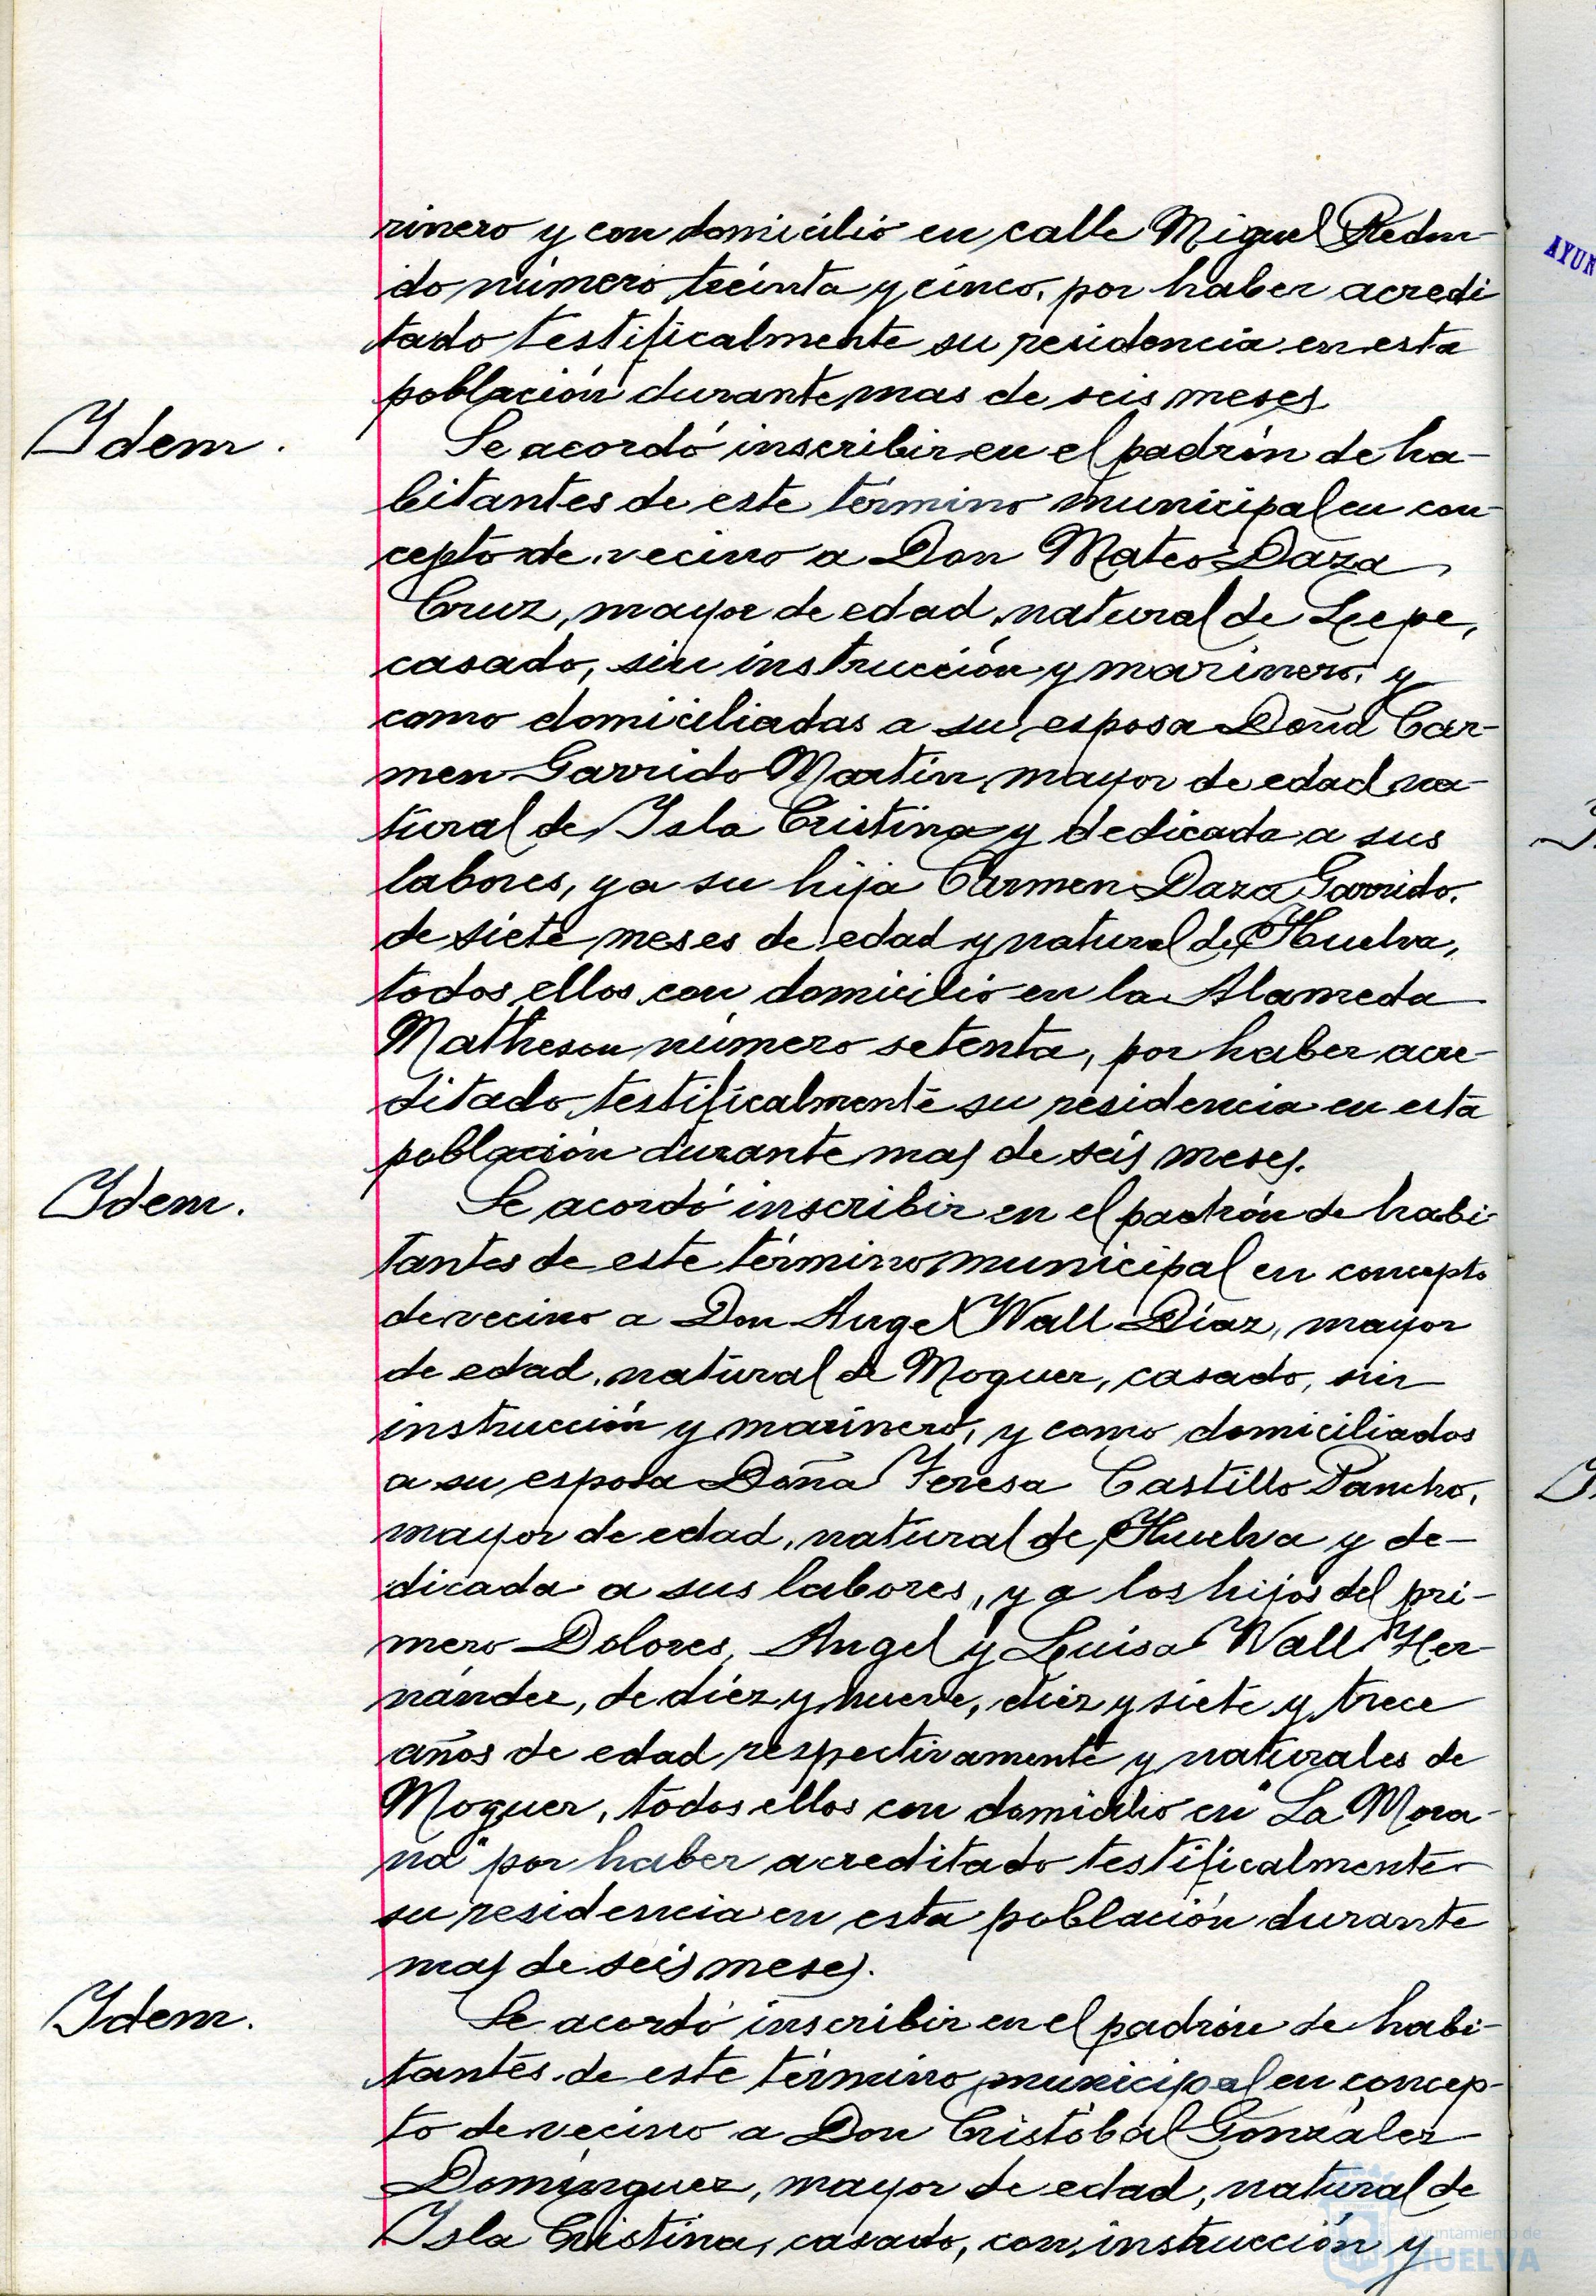 rinero y con domicilio en calle Miguel Redon-
do número treinta y cinco, por haber acredi
tado testificalmente su residencia en esta
población durante mas de seis meses
Idem.
Se acordó inscribir en el padrón de ha-
bitantes de este término municipal en con-
cepto de vecino a Don Mateo Daza
Cruz, mayor de edad, natural de Lepe,
casado, sin instrucción y marinero, y
como domiciliadas a su esposa Doña Car-
men Garrido Martín, mayor de edad, na-
tural de Isla Cristina y dedicada a sus
labores, y a su hija Carmen Daza Garrido,
de siete meses de edad y natural de Huelva,
todos ellos con domicilio en la Alameda
Matheson número setenta, por haber acre-
ditado testificalmente su residencia en esta
población durante mas de seis meses.
Idem.
Se acordó inscribir en el padrón de habi-
tantes de este término municipal en concepto
de vecino a Don Angel Wall Díaz, mayor
de edad, natural de Moguer, casado, sin
instrucción y marinero, y como domiciliados
a su esposa Doña Teresa Castillo Pancho,
mayor de edad, natural de Huelva y de-
dicada a sus labores, y a los hijos del pri-
mero Dolores, Angel y Luisa Wall Her-
nández, de diez y nueve, diez y siete y trece
años de edad respectivamente y naturales de
Moguer, todos ellos con domicilio en "La Mora-
na" por haber acreditado testificalmente
su residencia en esta población durante
mas de seis meses.
Idem.
Se acordó inscribir en el padrón de habi-
tantes de este término municipal en concep-
to de vecino a Don Cristóbal González
Domínguez, mayor de edad, natural de
Isla Cristina, casado, con instrucción y
AYUN
Ayuntamiento de
HUELVA